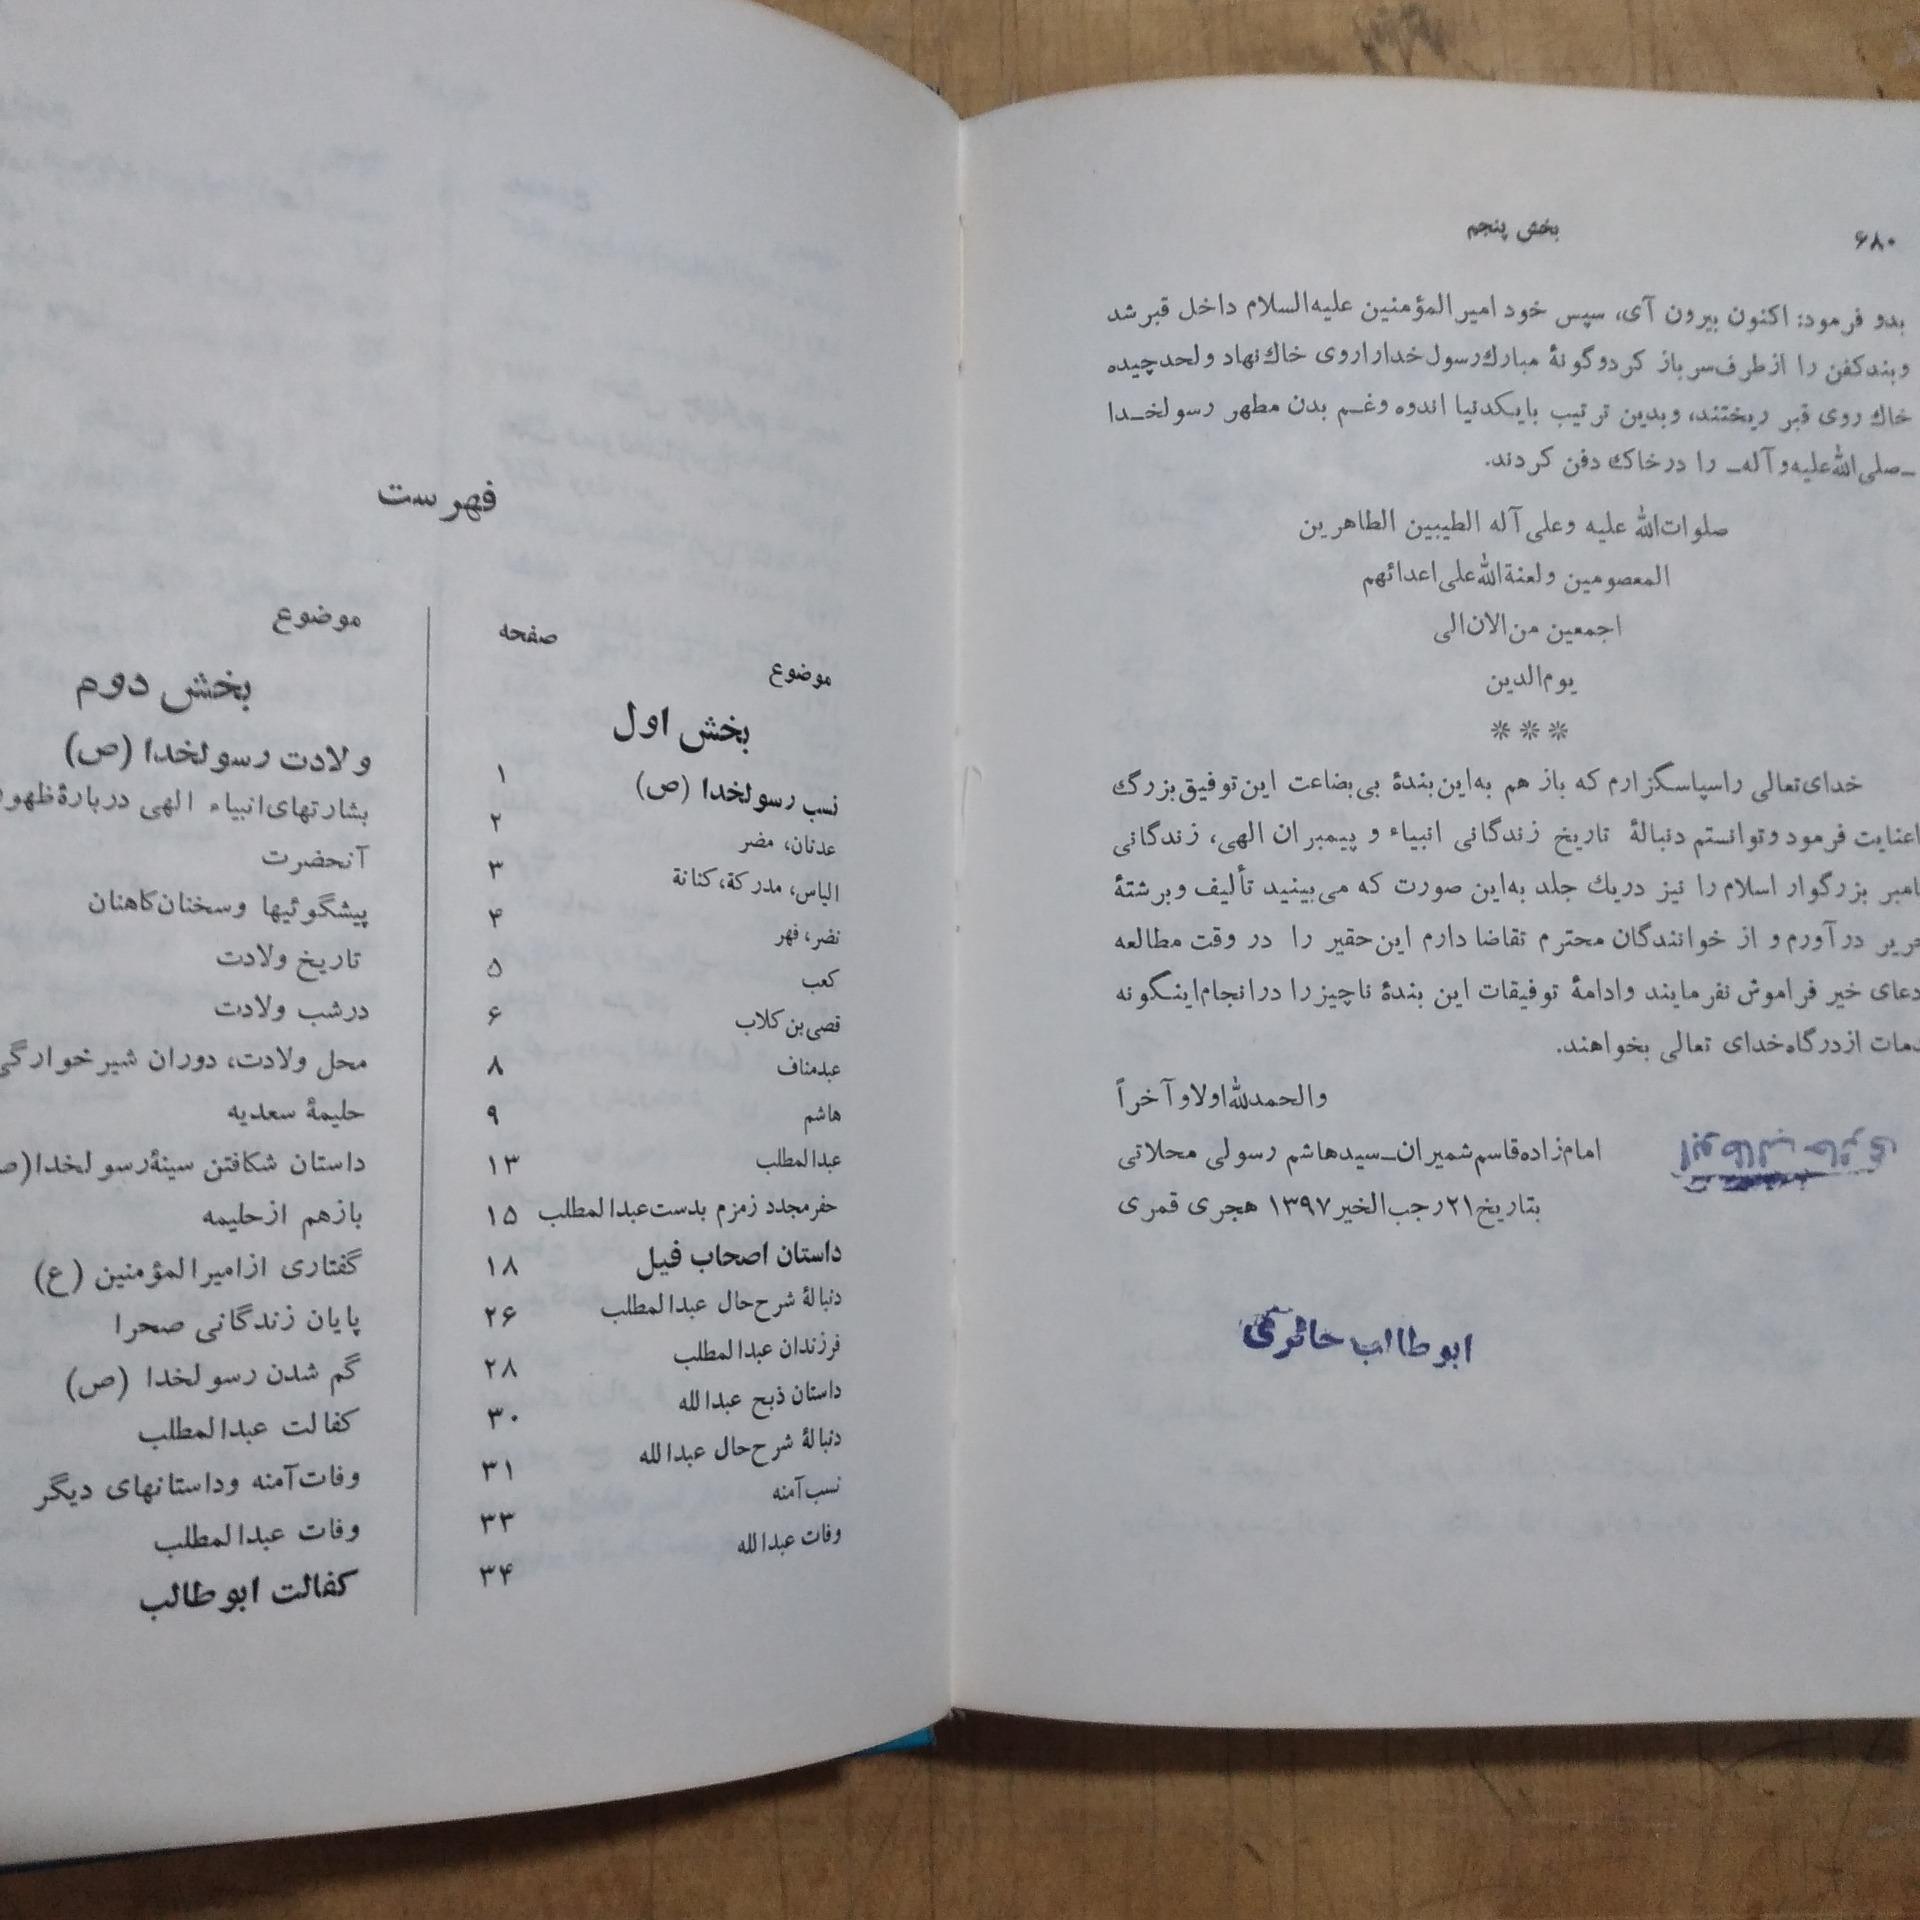 ۶۸۰
بخش پنجم
بدو فرمود: اکنون بیرون آی، سپس خود امیرالمؤمنین علیه‌السلام داخل قبر شد
و بند کفن را از طرف سر باز کرد و گونهٔ مبارك رسول خدا را روی خاك نهاد و لحد چیده
خاك روی قبر ریختند، و بدین ترتیب با یکدنیا اندوه و غـم بدن مطهر رسولخـدا
ـ صلی الله علیه و آله ـ را در خاك دفن کردند.
صلوات‌الله علیه و علی آله الطیبین الطاهرین
المعصومین و لعنة‌الله علی اعدائهم
اجمعین من الان الی
یوم‌الدین
* * *
خدای تعالی را سپاسگزارم که باز هم به این بندهٔ بی بضاعت این توفیق بزرگ
عنایت فرمود و توانستم دنبالهٔ تاریخ زندگانی انبیاء و پیمبران الهی، زندگانی
بزرگوار اسلام را نیز در یك جلد به این صورت که می‌بینید تألیف و برشتهٔ
در آورم و از خوانندگان محترم تقاضا دارم این حقیر را در وقت مطالعه
دعای خیر فراموش نفرمایند و ادامهٔ توفیقات این بندهٔ ناچیز را در انجام اینگونه
از درگاه خدای تعالی بخواهند.
والحمدلله اولا و آخراً
امام‌زاده قاسم شمیران ـ سیدهاشم رسولی محلاتی
بتاریخ ۲۱ رجب الخیر ۱۳۹۷ هجری قمری
ابوطالب حائری
ابوطالب حائری
فهرست
موضوع صفحه
بخش اول
نسب رسولخدا (ص) ۱
عدنان، مضر ۲
الیاس، مدرکة، کنانة ۳
نضر، فهر ۴
کعب ۵
قصی بن کلاب ۶
عبدمناف ۸
هاشم ۹
عبدالمطلب ۱۳
حفر مجدد زمزم بدست عبدالمطلب ۱۵
داستان اصحاب فیل ۱۸
دنبالهٔ شرح حال عبدالمطلب ۲۶
فرزندان عبدالمطلب ۲۸
داستان ذبح عبدالله ۳۰
دنبالهٔ شرح حال عبدالله ۳۱
نسب آمنه ۳۳
وفات عبدالله ۳۴
موضوع
بخش دوم
ولادت رسولخدا (ص)
بشارتهای انبیاء الهی دربارهٔ ظهور
آنحضرت
پیشگوئیها و سخنان کاهنان
تاریخ ولادت
در شب ولادت
محل ولادت، دوران شیرخوارگی
حلیمهٔ سعدیه
داستان شکافتن سینهٔ رسولخدا (ص
باز هم از حلیمه
گفتاری از امیرالمؤمنین (ع)
پایان زندگانی صحرا
گم شدن رسولخدا (ص)
کفالت عبدالمطلب
وفات آمنه و داستانهای دیگر
وفات عبدالمطلب
کفالت ابوطالب